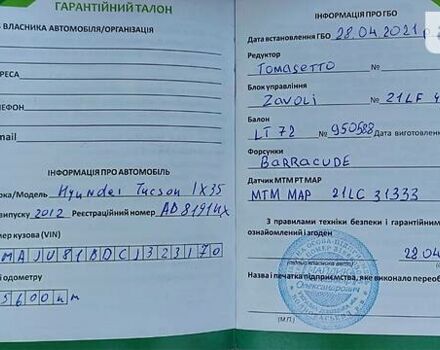 ГАРАНТІЙНИЙ ТАЛОН
ВЛАСНИКА АВТОМОБІЛЯ/ОРГАНІЗАЦІЯ
РЕСА
ЕФОН
mail
ІНФОРМАЦІЯ ПРО АВТОМОБІЛЬ
рка/Модель Hyundei Tucson IX35
випуску 2012 Реєстраційний номер
мер кузова (VIN)
MAJU81BDCJ323170
и одометру
5600 km
ІНФОРМАЦІЯ ПРО ГБО
Дата встановлення ГБО 28.04.2021 р.
Редуктор
Tomasetto №
Блок управління
Zavoli 21LF 4
Балон
LT 72 № 950588 Дата виготовлен
Форсунки
BARRACUDE
Датчик МТМ РТ МАР
MTM MAP 21LC 31333
З правилами техніки безпеки і гарантійним
ознайомлений і згоден
28.04
(підпис власника авто)
Назва і печатка підприємства, яке виконало переоб
Олександрович
(М.П.)